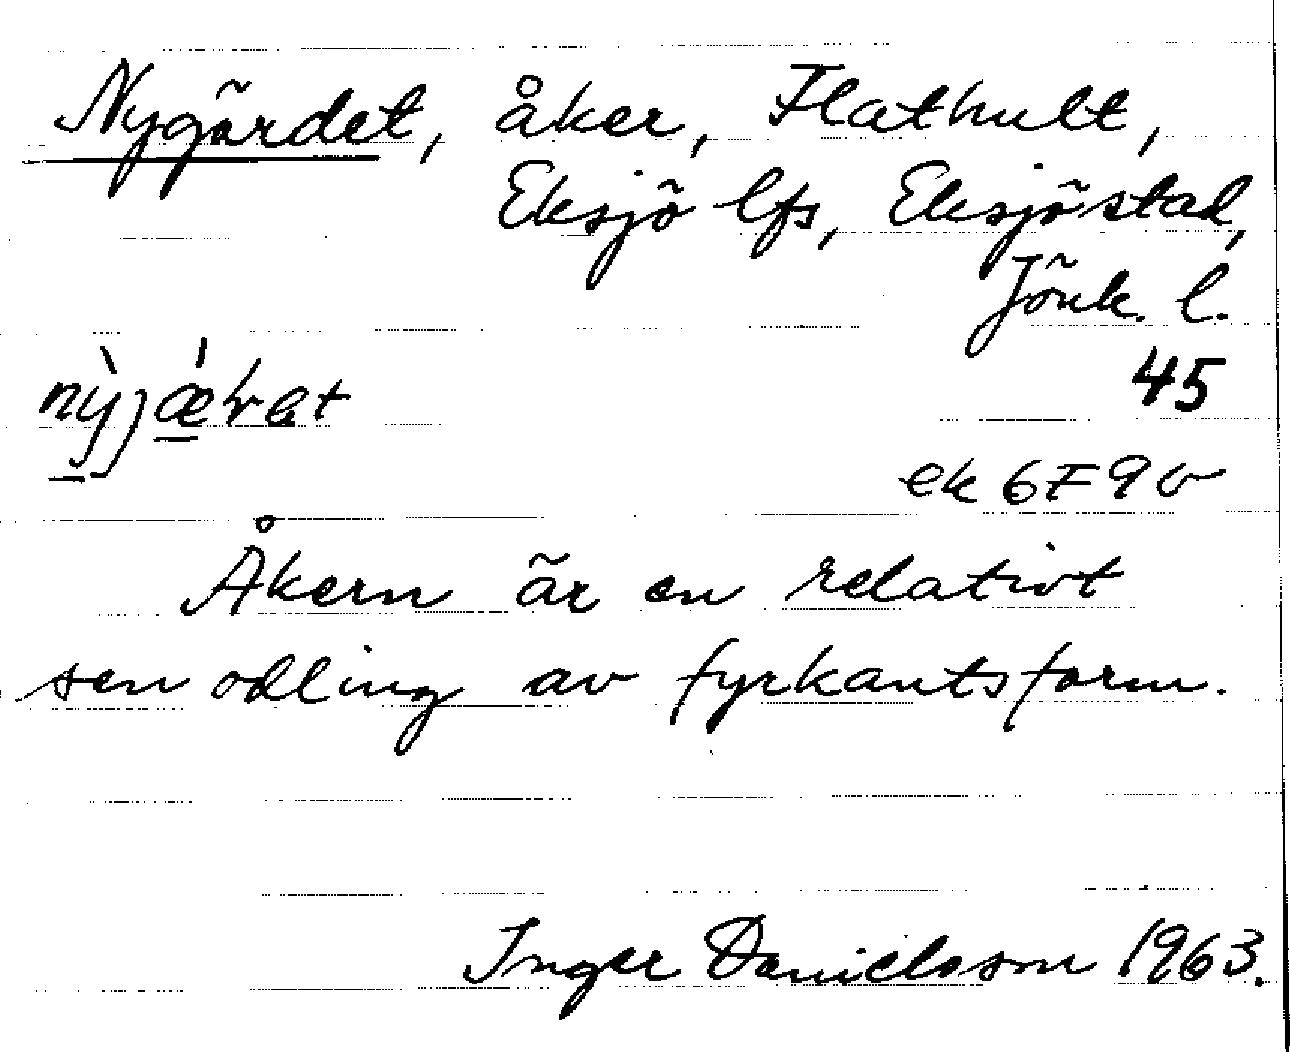 Nygärdet, åker, Flathult,
Eksjö lfs, Eksjöstad,
Jönk. l.
45
ek 6F 9 v
Åkern är en relativt
sen odling av fyrkantsform.
Inger Danielsson 1963.